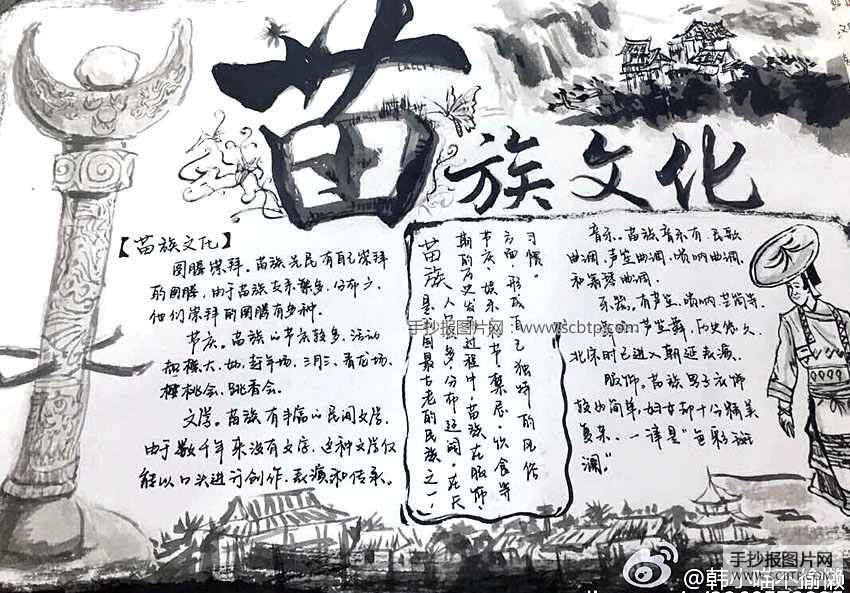 苗族文化
【苗族文化】
图腾崇拜。苗族先民有自己崇拜
的图腾,由于苗族支系繁多、分布广、
他们崇拜的图腾有多种。
节庆。苗族的节庆较多、活动
规模大、如:赶年场、三月三、看龙场、
樱桃会、跳香会。
文学。苗族有丰富的民间文学,
由于数千年来没有文字,这种文学仅
能以口头进行创作、表演和传承。
苗族是我国最古老的民族之一,
人口众多,分布辽阔。在长
期的历史发展过程中,苗族在服饰、
节庆、娱乐、礼节、禁忌、饮食等
方面,形成自己独特的风俗
习惯。
音乐。苗族音乐有:民歌
曲调,芦笙曲调、唢呐曲调、
和箫琴曲调
乐器。有芦笙、唢呐
芦笙舞,历史悠久、
北宋时已进入朝廷表演。
服饰。苗族男子衣饰
较为简单,妇女却十分精美
复杂、一律是“色彩斑
澜。”
手抄报图片网:www.scbtp.com
手抄报图片网
www.scbtp.com
@韩小喵不偷懒